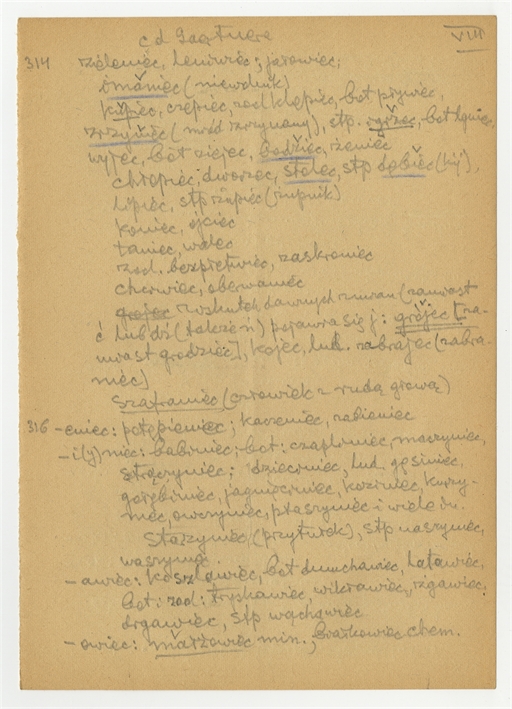 cd Gaertnera VIII
314 zieleniec, leniwiec; jarowiec,
imaniec (niewolnik)
kupiec, czepiec, zool klępiec, bot prywiec,
zrzyniec (miód zrzynany), stp. , bot
wyjec, bot ziejec, bodziec, żeniec
chłopiec, dworzec, stolec, stp dębiec (kij),
lipiec, stp żupiec (żupnik)
koniec, ojciec
taniec, walec
zool. bezpletwiec, zaskroniec
czerwiec, oberwaniec
grojec wskutek dawnych zmian (zamiast
ć lub dź (zależeń) pojawia się j: grójec [za-
miast grodziec], kojec, lud. zabrajec (zabra-
niec)
szafraniec (człowiek z rudą głową)
316 -eniec: potępieniec; korzeniec, zabieniec
-i(y)niec: babiniec; bot: czapliniec, maczyniec,
strączyniec; dzieciniec, lud gęsiniec,
gołębiniec, jagnięciniec, koziniec, kurzy-
niec, owczyniec, ptaszyniec i wiele in.
Starzyniec (przytułek), stp naszyniec,
waszyniec
-awiec: koszlawiec, bot dmuchawiec, latawiec,
bot: zool: tryskawiec, wikławiec, rzgawiec,
drgawiec, stp wąchawiec
-owiec: marzowiec min., boraksowiec chem.